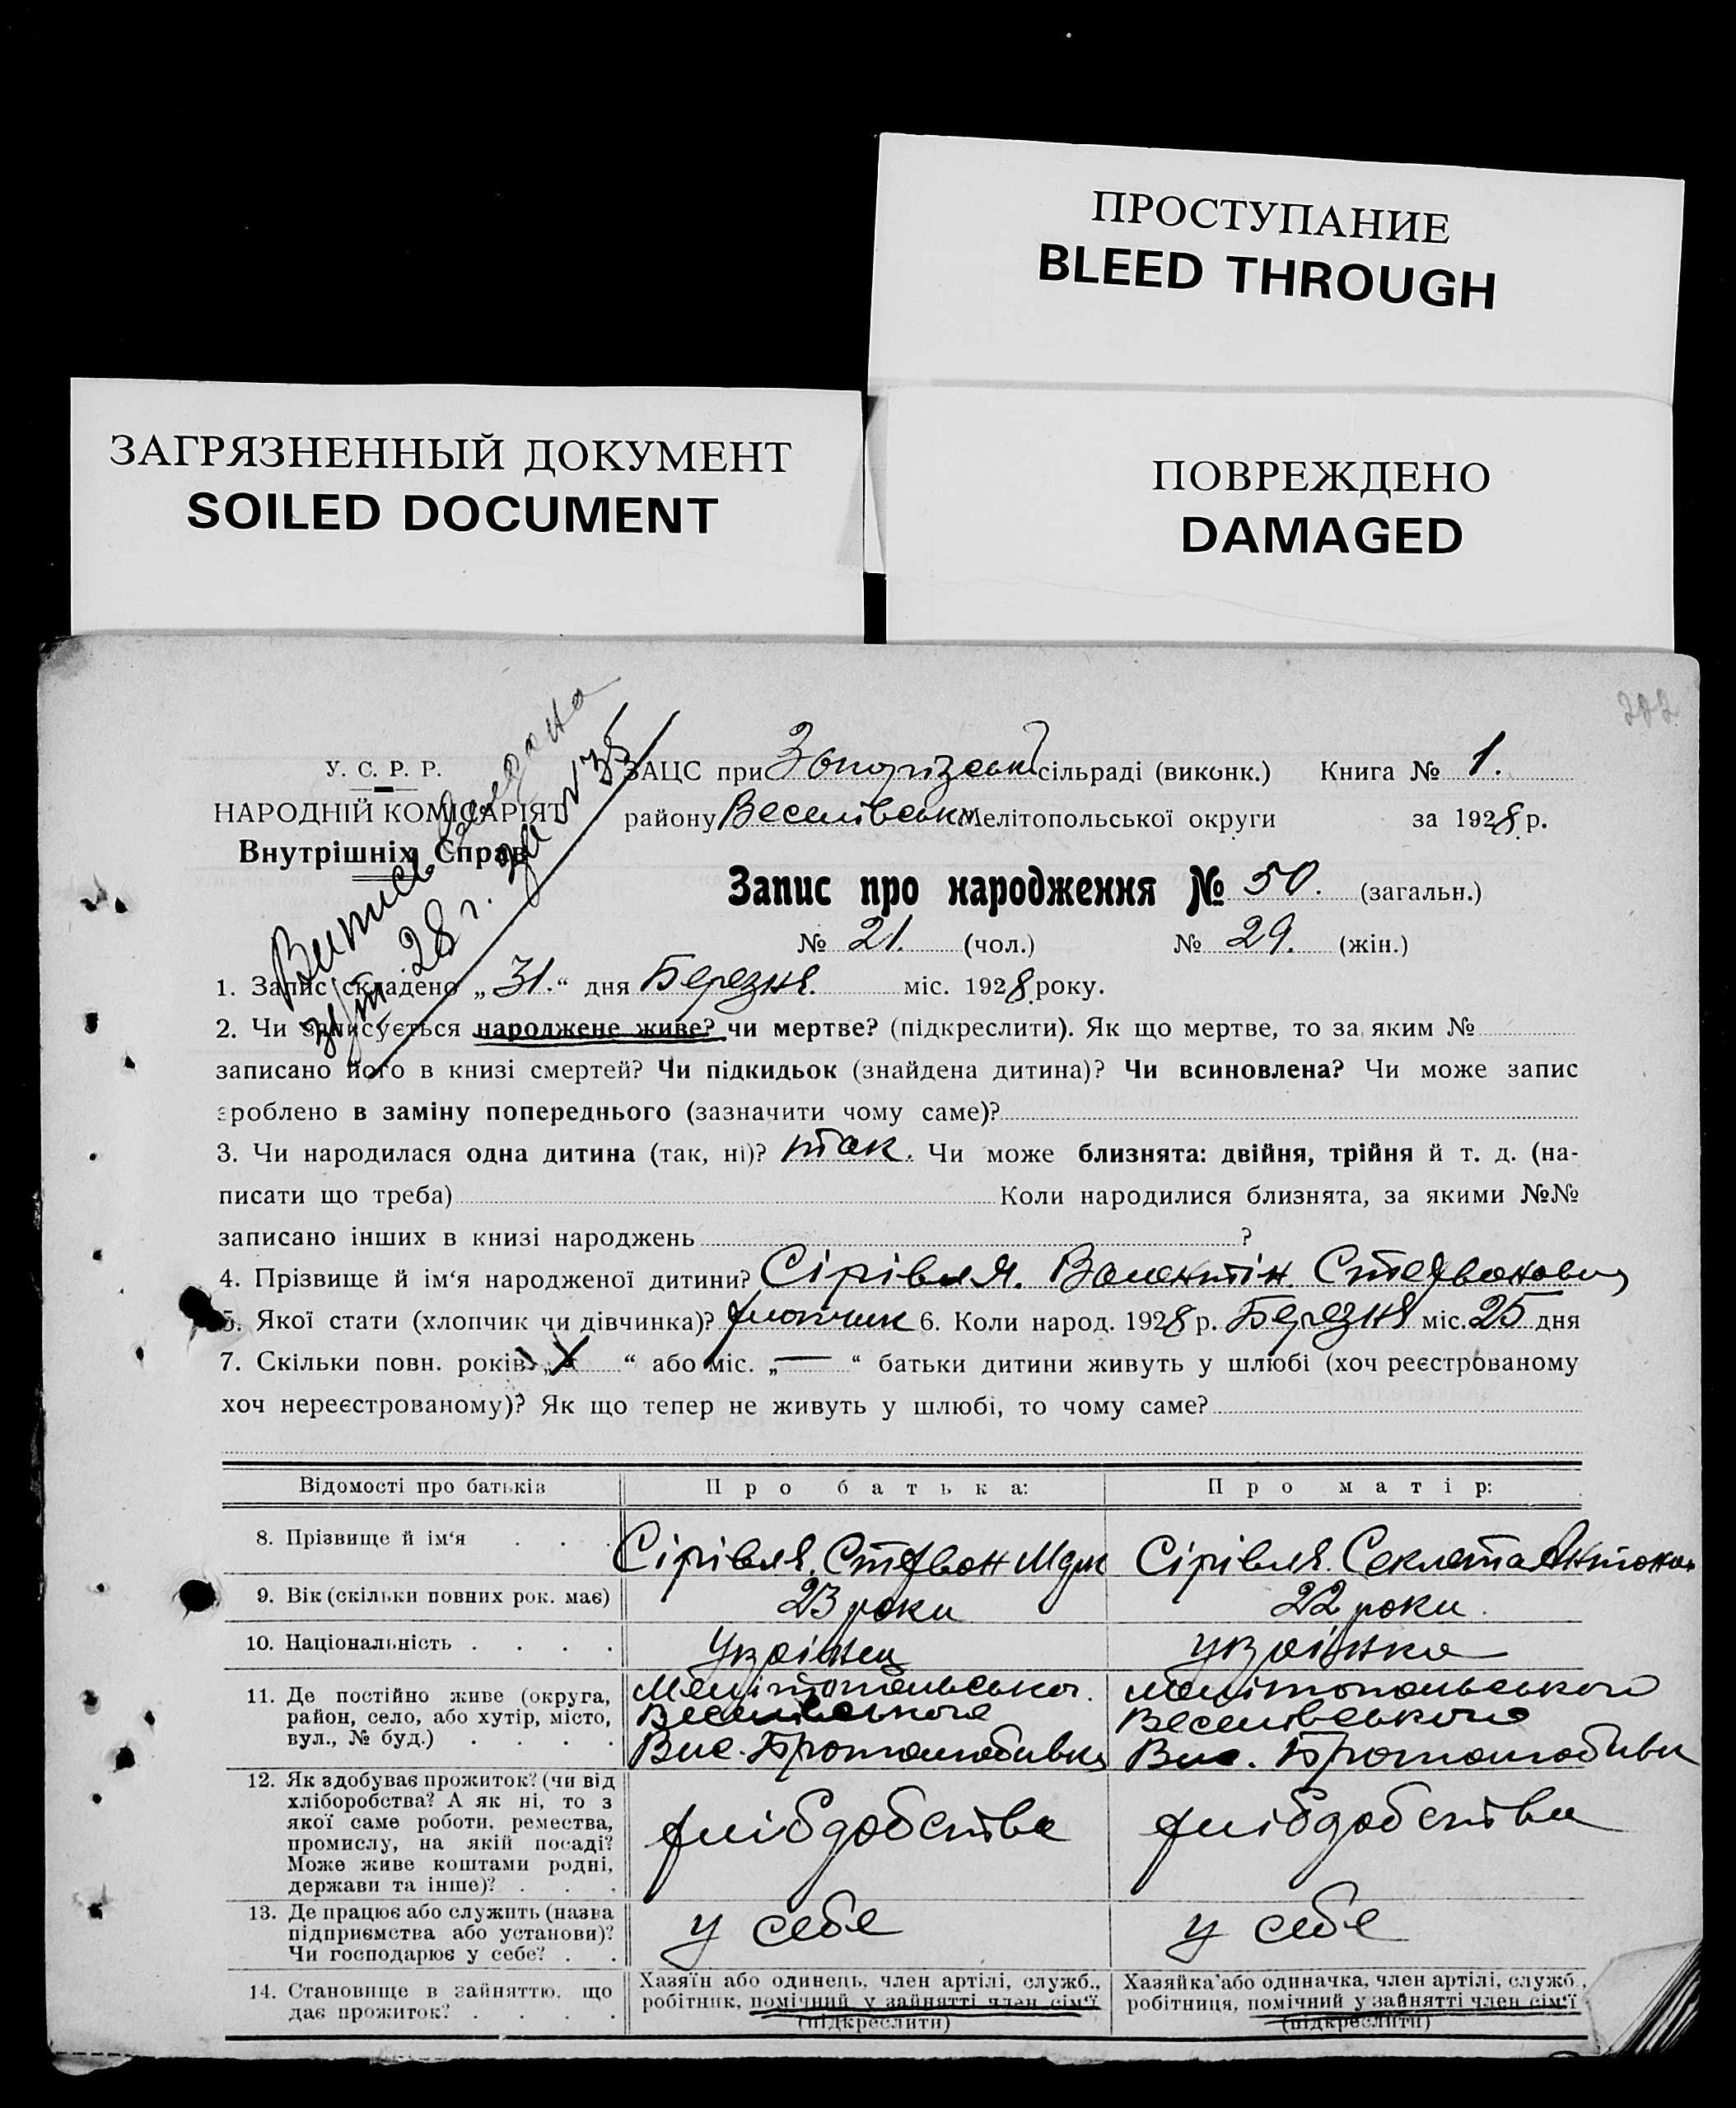 ПРОСТУПАНИЕ
BLEED THROUGH
ЗАГРЯЗНЕННЫЙ ДОКУМЕНТ
SOILED DOCUMENT
ПОВРЕЖДЕНО
DAMAGED
Випись
28 г. за № 35
У. С. Р. Р.
НАРОДНІЙ КОМІСАРІЯТ
Внутрішніх Справ
ЗАЦС при Запорізькі сільраді (виконк.) Книга № 1.
району Веселівськ Мелітопольської округи за 1928 р.
Запис про народження № 50. (загальн.)
№ 21. (чол.) № 29. (жін.)
1. Запис складено „31.“ дня Березня. міс. 1928 року.
2. Чи записується народжене живе? чи мертве? (підкреслити). Як що мертве, то за яким №
записано його в книзі смертей? Чи підкидьок (знайдена дитина)? Чи всиновлена? Чи може запис
зроблено в заміну попереднього (зазначити чому саме)?
3. Чи народилася одна дитина (так, ні)? так. Чи може близнята: двійня, трійня й т. д. (на-
писати що треба) Коли народилися близнята, за якими №№
записано інших в книзі народжень ?
4. Прізвище й ім‘я народженої дитини? Сірівля. Валентін Стефванович
5. Якої стати (хлопчик чи дівчинка)? хлопчик 6. Коли народ. 1928 р. Березня міс. 25 дня
7. Скільки повн. років „ “ або міс. „—“ батьки дитини живуть у шлюбі (хоч реєстрованому
хоч нереєстрованому)? Як що тепер не живуть у шлюбі, то чому саме?
Відомості про батьків Про батька: Про матір:
8. Прізвище й ім‘я . . . Сірівля. Стефван Сірівля. Секлета Антонов
9. Вік (скільки повних рок. має) 23 роки 22 роки.
10. Національність . . . . Українец українка
11. Де постійно живе (округа,
район, село, або хутір, місто,
вул., № буд.) . . . .
Мелітопольської.
Веселівського
Вис. Братолюбивка
Мелітопольського
Веселівського
Вис. Братолюбивк
12. Як здобуває прожиток? (чи від
хліборобства? А як ні, то з
якої саме роботи, ремества,
промислу, на якій посаді?
Може живе коштами родні,
держави та інше)? . . .
хлібдобства
хлібдобства
13. Де працює або служить (назва
підприємства або установи)?
Чи господарює у себе? . .
у себе
у себе
14. Становище в зайняттю, що
дає прожиток? . . . .
Хазяїн або одинець, член артілі, служб.,
робітник, помічний у зайнятті член сім‘ї
(підкреслити)
Хазяйка або одиначка, член артілі, служб.,
робітниця, помічний у зайнятті член сім‘ї
(підкреслити)